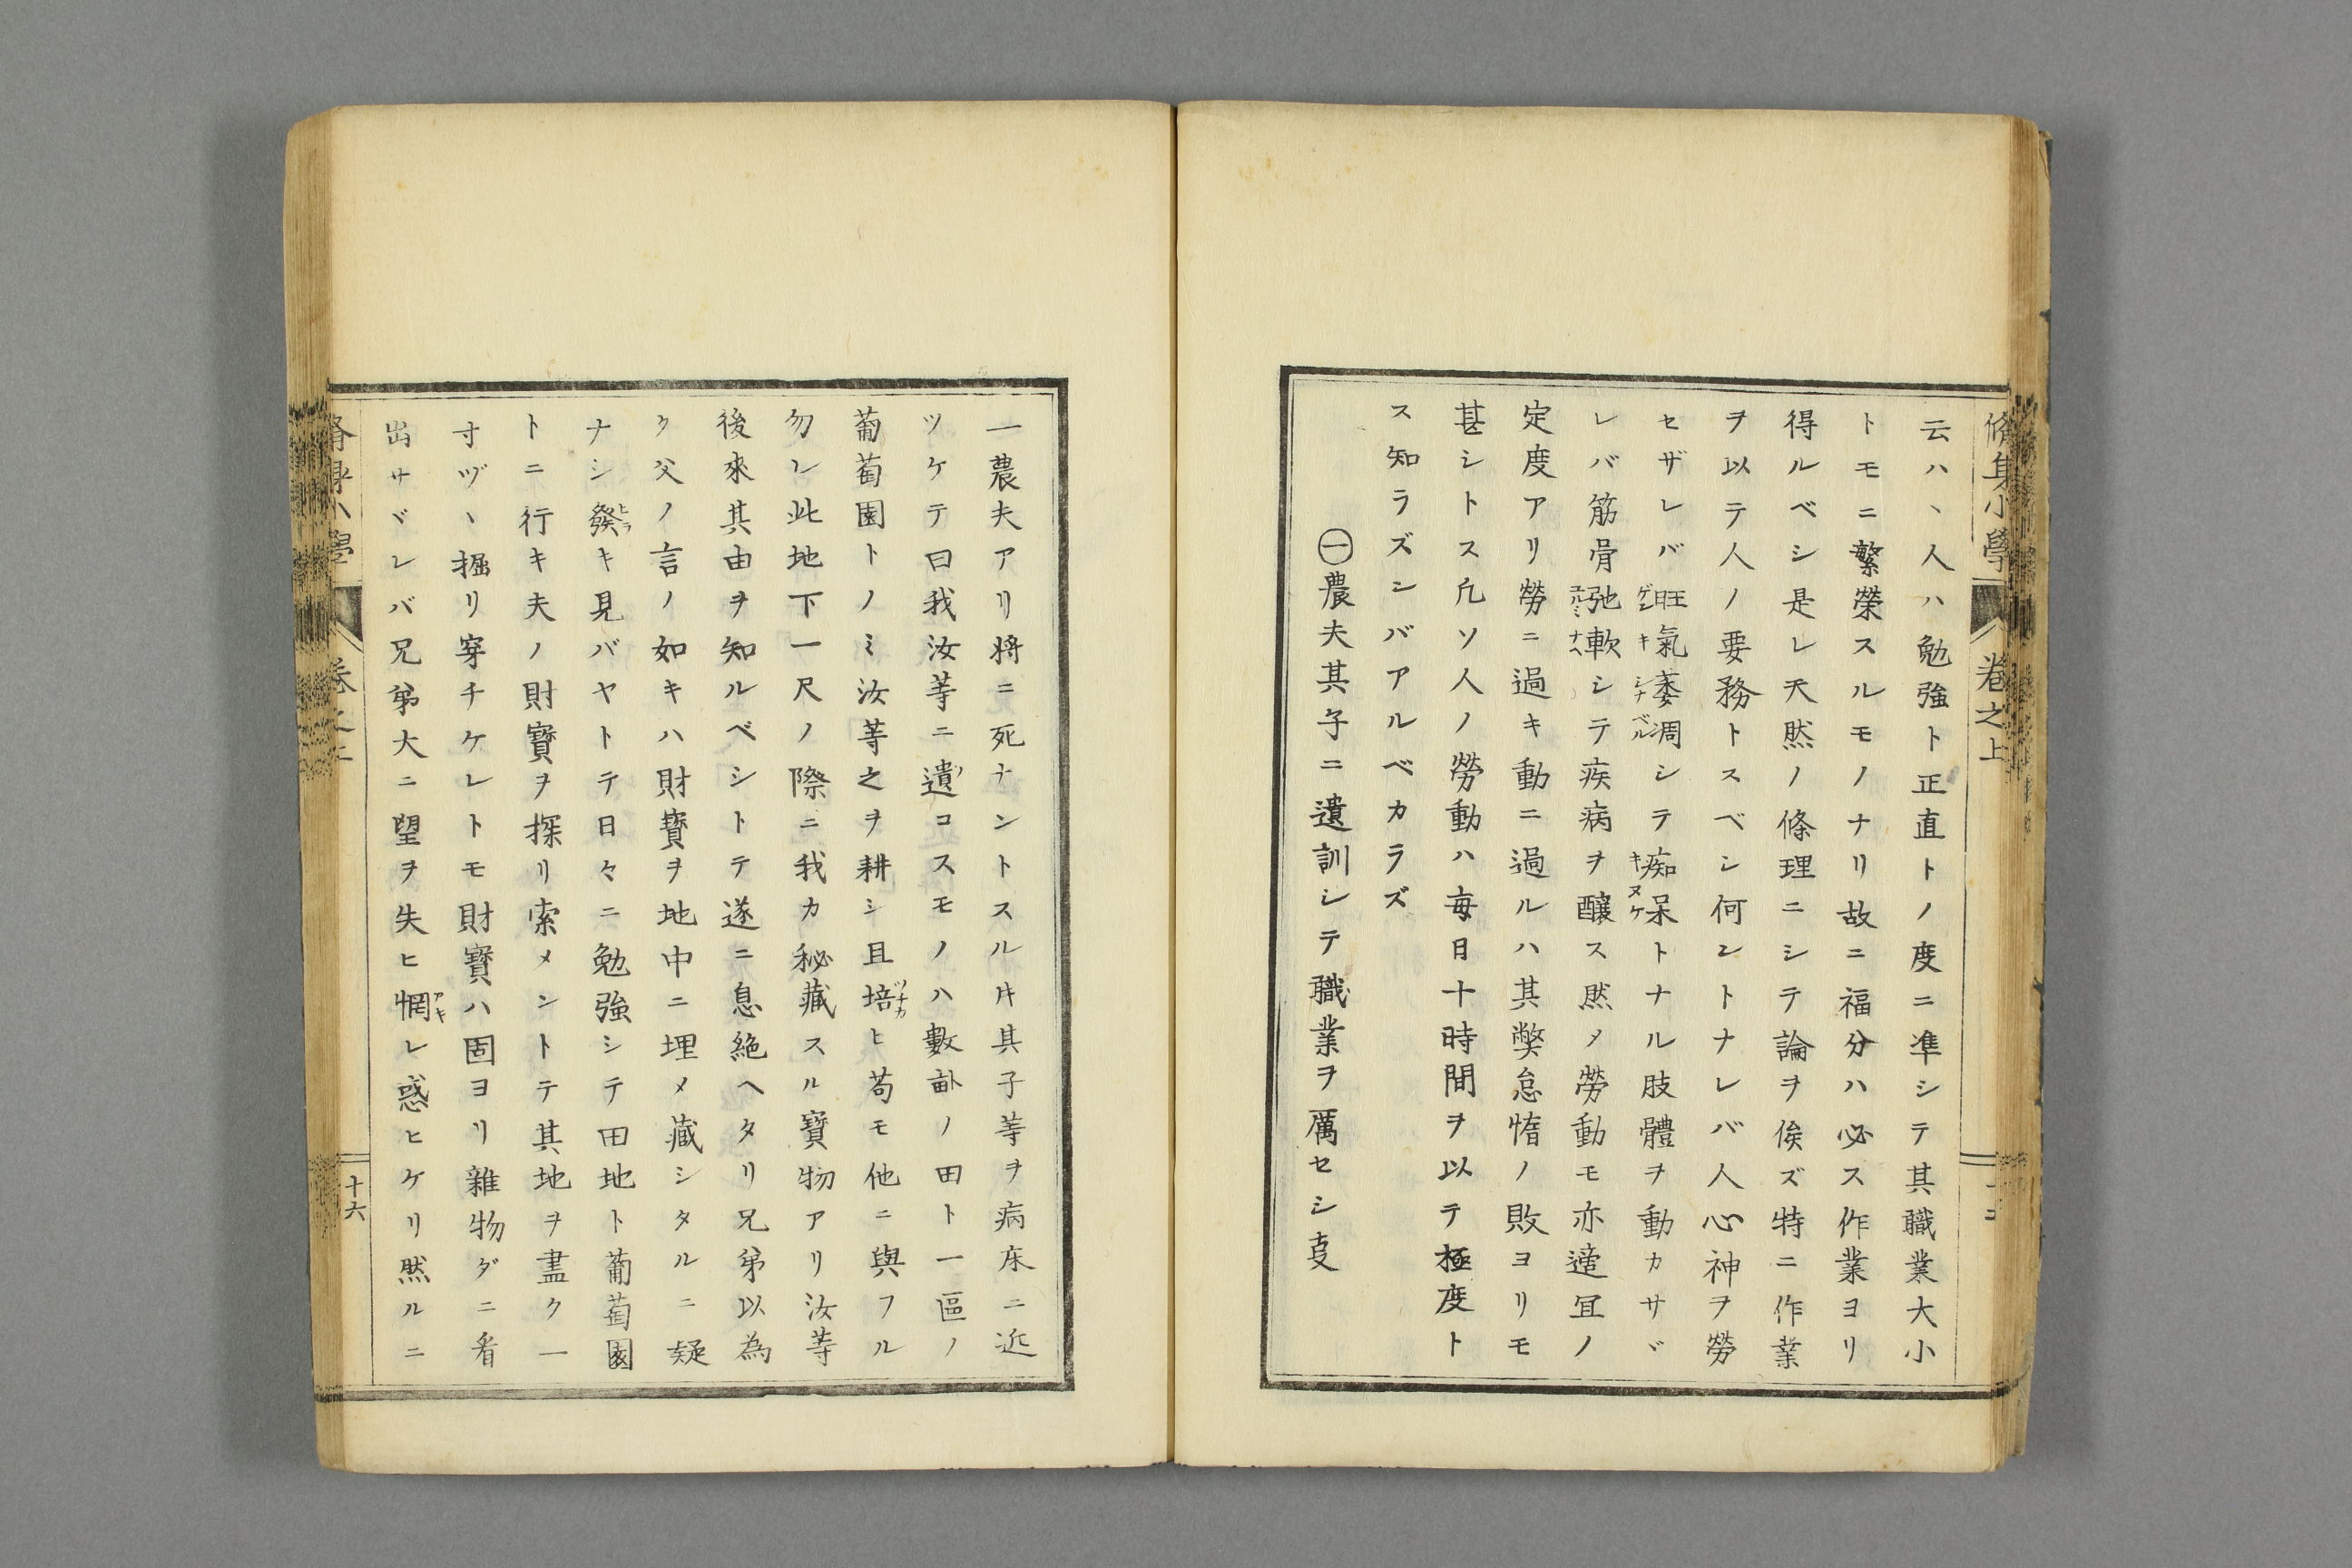 脩身小學 卷之上
云ハヽ人ハ勉強ト正直トノ度ニ準シテ其職業大小
トモニ繁榮スルモノナリ故ニ福分ハ必ス作業ヨリ
得ルベシ是レ天然ノ條理ニシテ論ヲ俟ズ特ニ作業
ヲ以テ人ノ要務トスベシ何ントナレバ人心神ヲ勞
セザレバ旺氣萎凋シテ痴呆トナル肢體ヲ動カサヾ
レバ筋骨弛軟シテ疾病ヲ釀ス然メ勞動モ亦適宜ノ
定度アリ勞ニ過キ動ニ過ルハ其弊怠惰ノ敗ヨリモ
甚シトス凡ソ人ノ勞動ハ每日十時間ヲ以テ極度ト
ス知ラズンバアルベカラズ
㊀農夫其子ニ遺訓シテ職業ヲ厲セシ㕝
一農夫アリ將ニ死ナントスル片其子等ヲ病床ニ近
ツケテ曰我汝等ニ遺コスモノハ數畝ノ田ト一區ノ
葡萄園トノミ汝等之ヲ耕シ且培ヒ苟モ他ニ與フル
勿レ此地下一尺ノ際ニ我カ秘藏スル寶物アリ汝等
後來其由ヲ知ルベシトテ遂ニ息絶ヘタリ兄弟以為
ク父ノ言ノ如キハ財寶ヲ地中ニ埋メ藏シタルニ疑
ナシ發キ見バヤトテ日々ニ勉強シテ田地ト葡萄園
トニ行キ夫ノ財寶ヲ探リ索メントテ其地ヲ盡ク一
寸ヅヽ掘リ穿チケレトモ財寶ハ固ヨリ雜物ダニ看
出サヾレバ兄弟大ニ望ヲ失ヒ惘レ惑ヒケリ然ルニ
十六